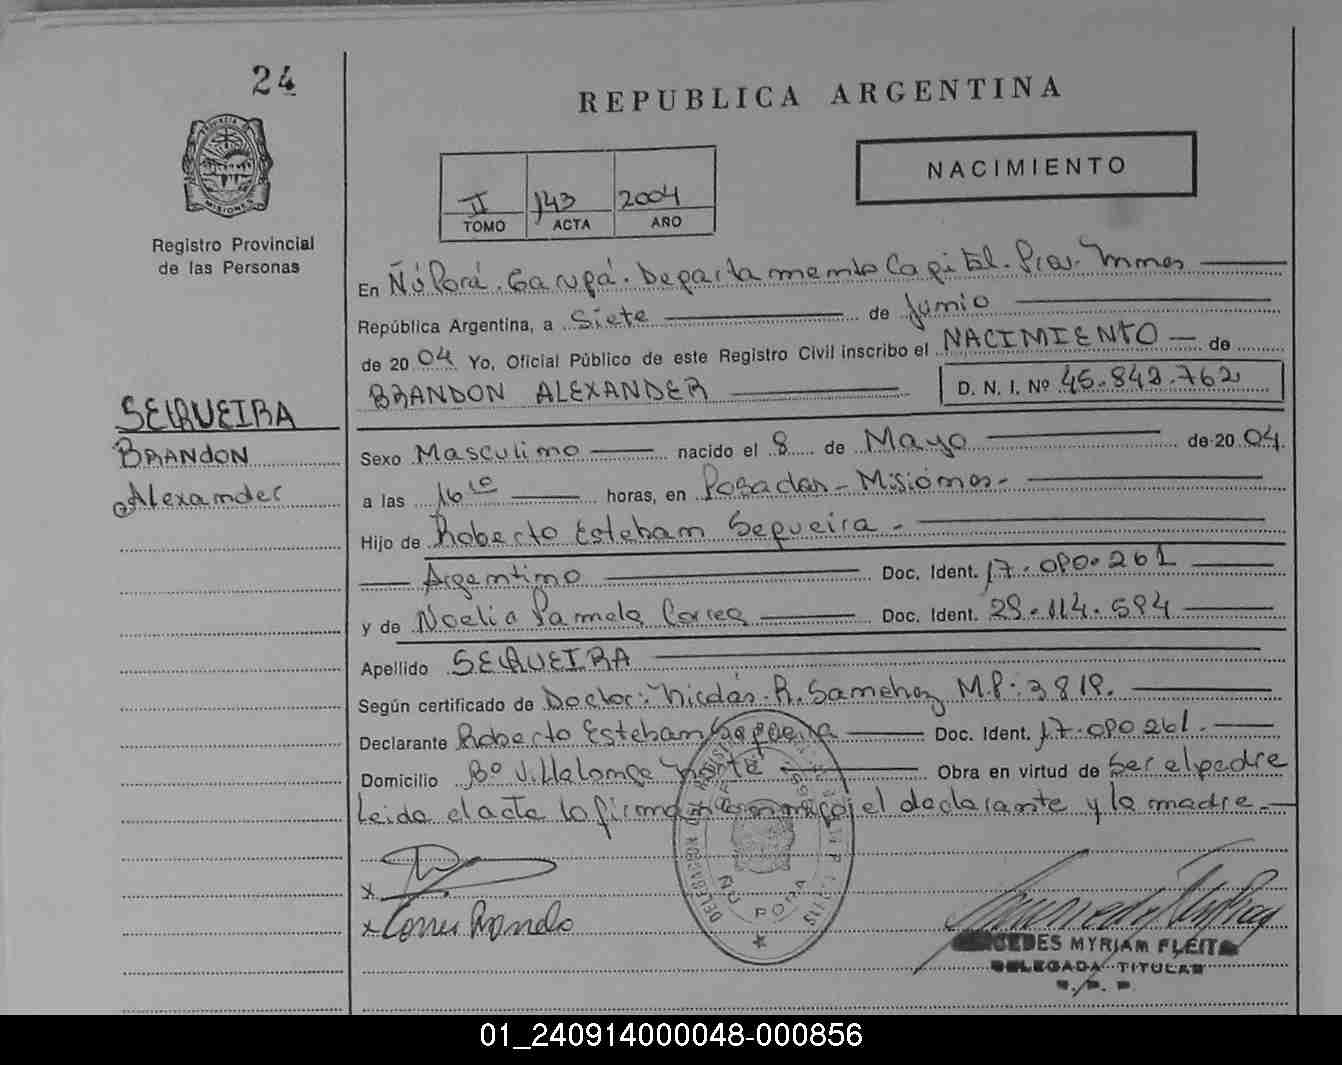 24
REPUBLICA ARGENTINA
NACIMIENTO
PROVINCIA DE
MISIONES
Registro Provincial
de las Personas
II 143 2004
TOMO ACTA AÑO
En Ñú Porá. Garupá. Departamento Capital. Misiones
República Argentina, a Siete de Junio
de 2004 Yo, Oficial Público de este Registro Civil inscribo el NACIMIENTO de
BRANDON ALEXANDER D. N. I. Nº 45.842.762
SEQUEIRA
BRANDON
Alexander
Sexo Masculino nacido el 8 de Mayo de 2004.
a las 16 10 horas, en Posadas - Misiones-
Hijo de Roberto Esteban Sequeira -
Argentino Doc. Ident. 17.090.261
y de Noelia Pamela Correa Doc. Ident. 29.114.594
Apellido SEQUEIRA
Según certificado de Doctor: Nicolás R. Sanchez M.P: 3819.
Declarante Roberto Esteban Sequeira Doc. Ident. 17.090.261.
Domicilio Bº Villalonga Norte Obra en virtud de Ser el padre
Leida el acta la firman conmigo, el declarante y la madre.-
x
x Correa
ÑU PORA
MERCEDES MYRIAM FLEITA
DELEGADA TITULAR
R. P. P.
01_240914000048-000856